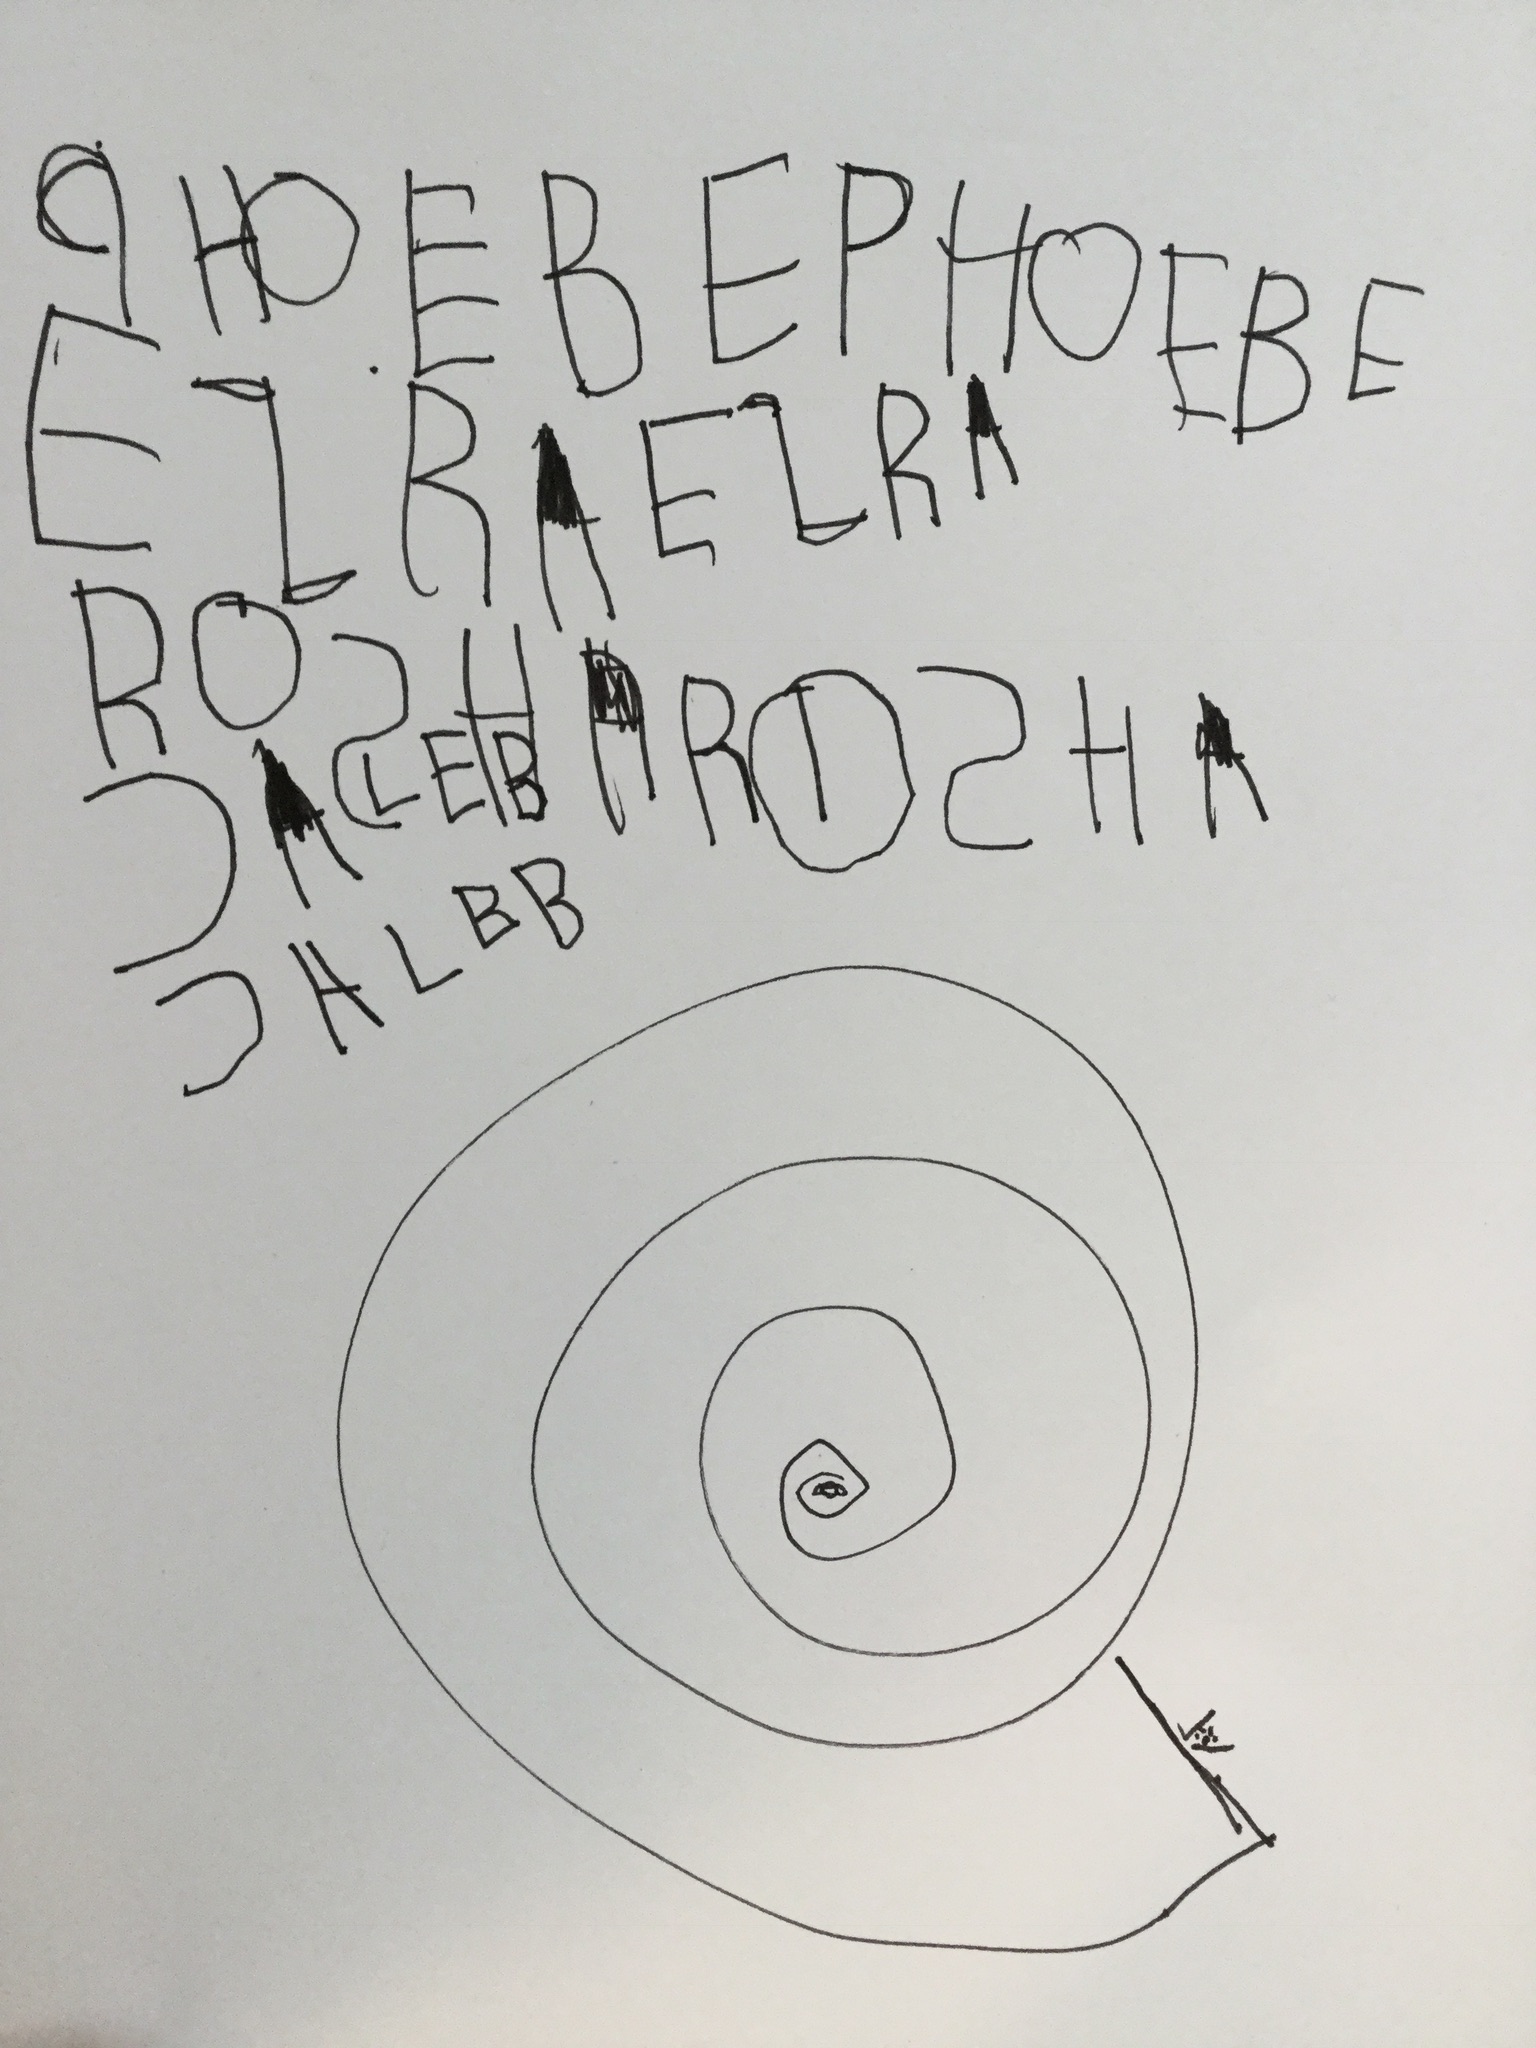 PHOEBEPHOEBE
ELRAELRA
ROSHAROSHA
CALEB
CALBB